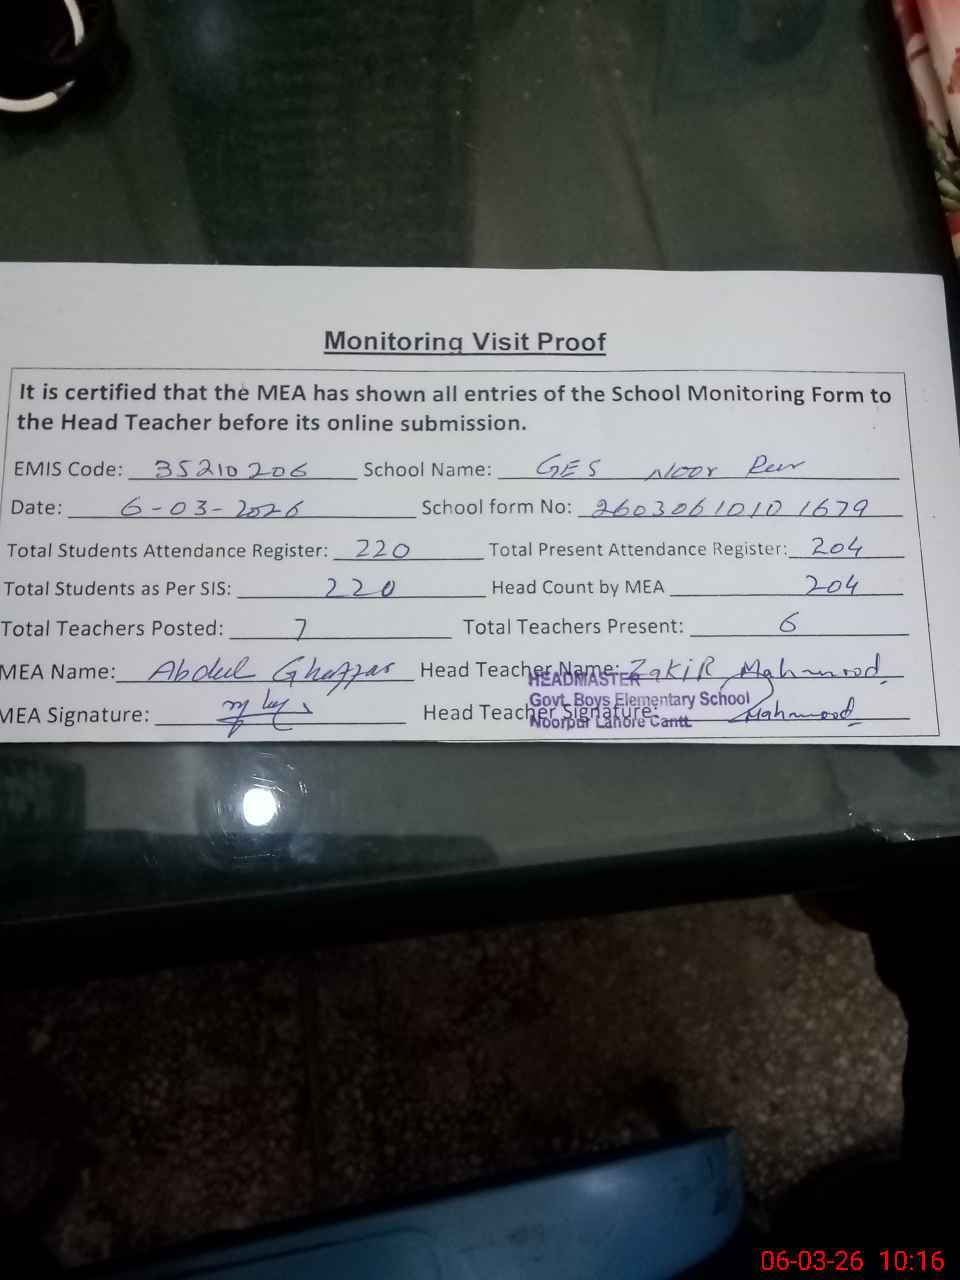 Monitoring Visit Proof
It is certified that the MEA has shown all entries of the School Monitoring Form to
the Head Teacher before its online submission.
EMIS Code: 35210206 School Name: GES Noor Pur
Date: 6-03-2026 School form No: 2603061010 1679
Total Students Attendance Register: 220 Total Present Attendance Register: 204
Total Students as Per SIS: 220 Head Count by MEA 204
Total Teachers Posted: 7 Total Teachers Present: 6
MEA Name: Abdul Ghaffar Head Teacher Name: Zakir Mahmood
HEADMASTER
Govt. Boys Elementary School
MEA Signature: Head Teacher Signature: Mahmood
Noorpur Lahore Cantt
06-03-26 10:16